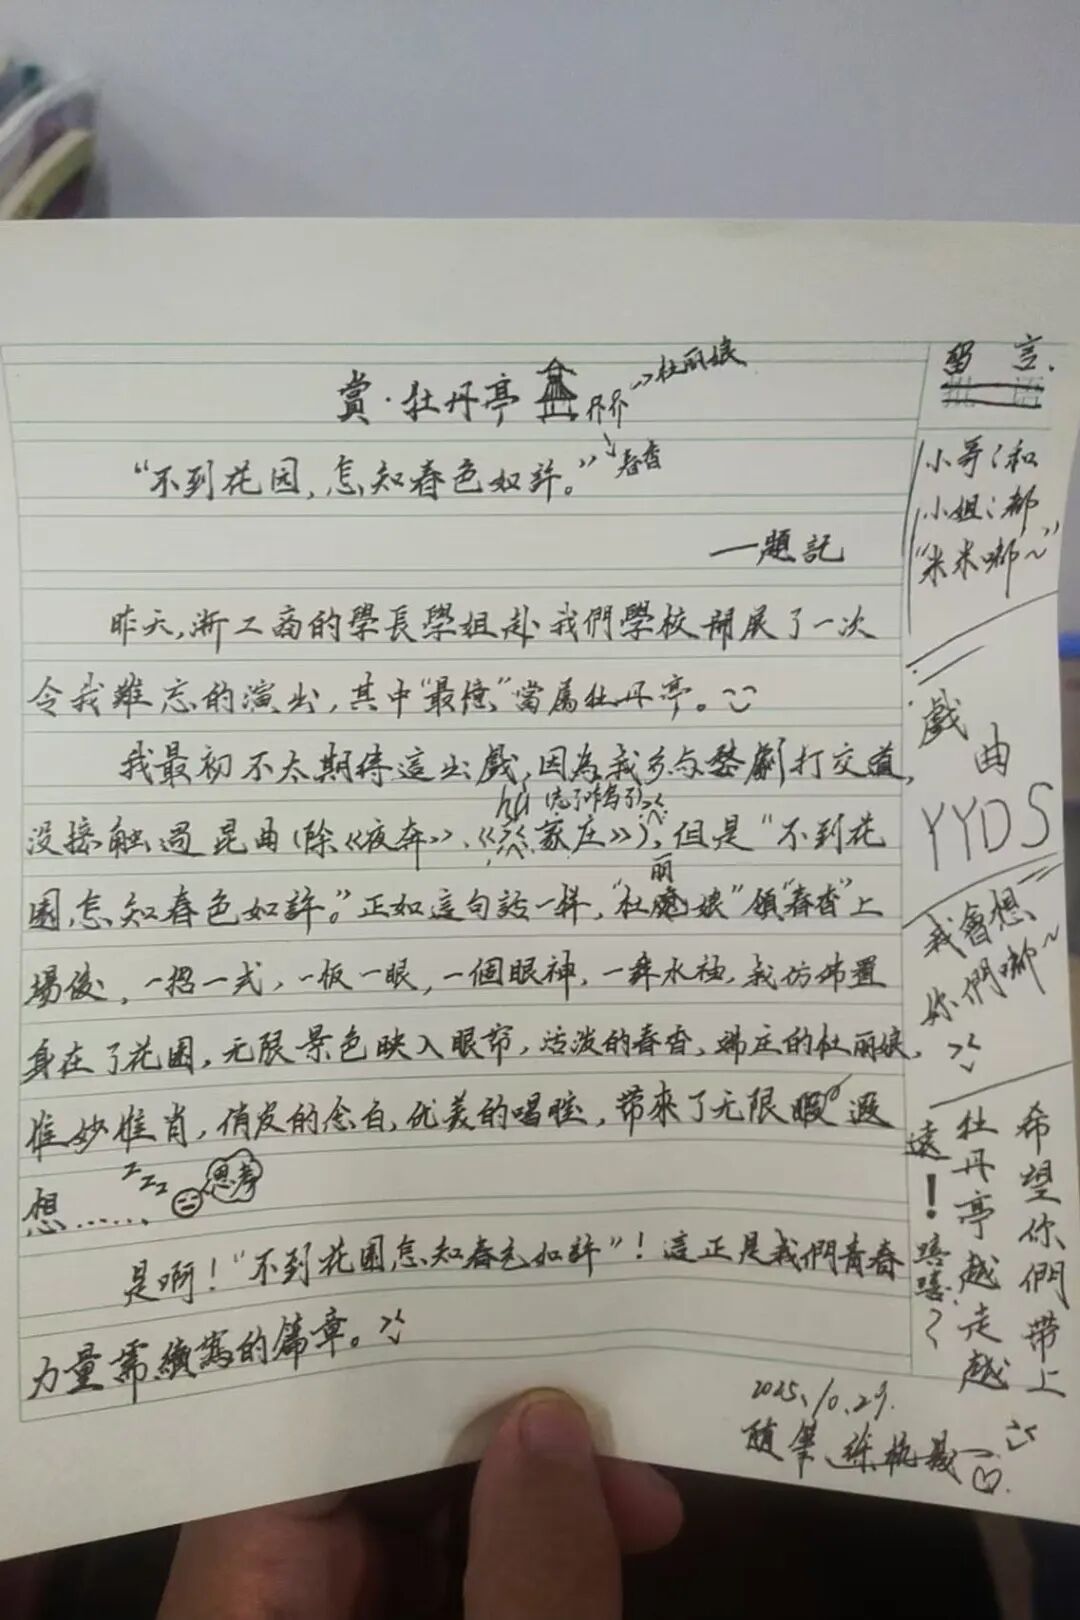 賞·牡丹亭
→杜丽娘
→春香
“不到花园,怎知春色如許。”
—題記
昨天,浙工商的學長學姐赴我們學校開展了一次
令我難忘的演出,其中“最憶”當属牡丹亭。
我最初不太期待這出戲,因為我多与婺劇打交道,
hù(忘了咋写了)
没接触過昆曲(除《夜奔》、《家庄》),但是“不到花
園,怎知春色如許。”正如這句話一样,“杜丽娘”領“春香”上
場後,一招一式,一板一眼,一個眼神,一舞水袖,我仿佛置
身在了花園,无限景色映入眼帘,活泼的春香,端庄的杜丽娘,
惟妙惟肖,俏皮的念白,优美的唱腔,帶來了无限遐
想......
zzz
思考
是啊!“不到花園,怎知春色如許”!這正是我們青春
力量需續寫的篇章。
留言.
小哥和
小姐都
“米米嘟~”
戲曲
YYDS
我會想
你們嘟~
希望你們帶上
牡丹亭越走越
遠!嘻嘻~
2025.10.29.
隨筆